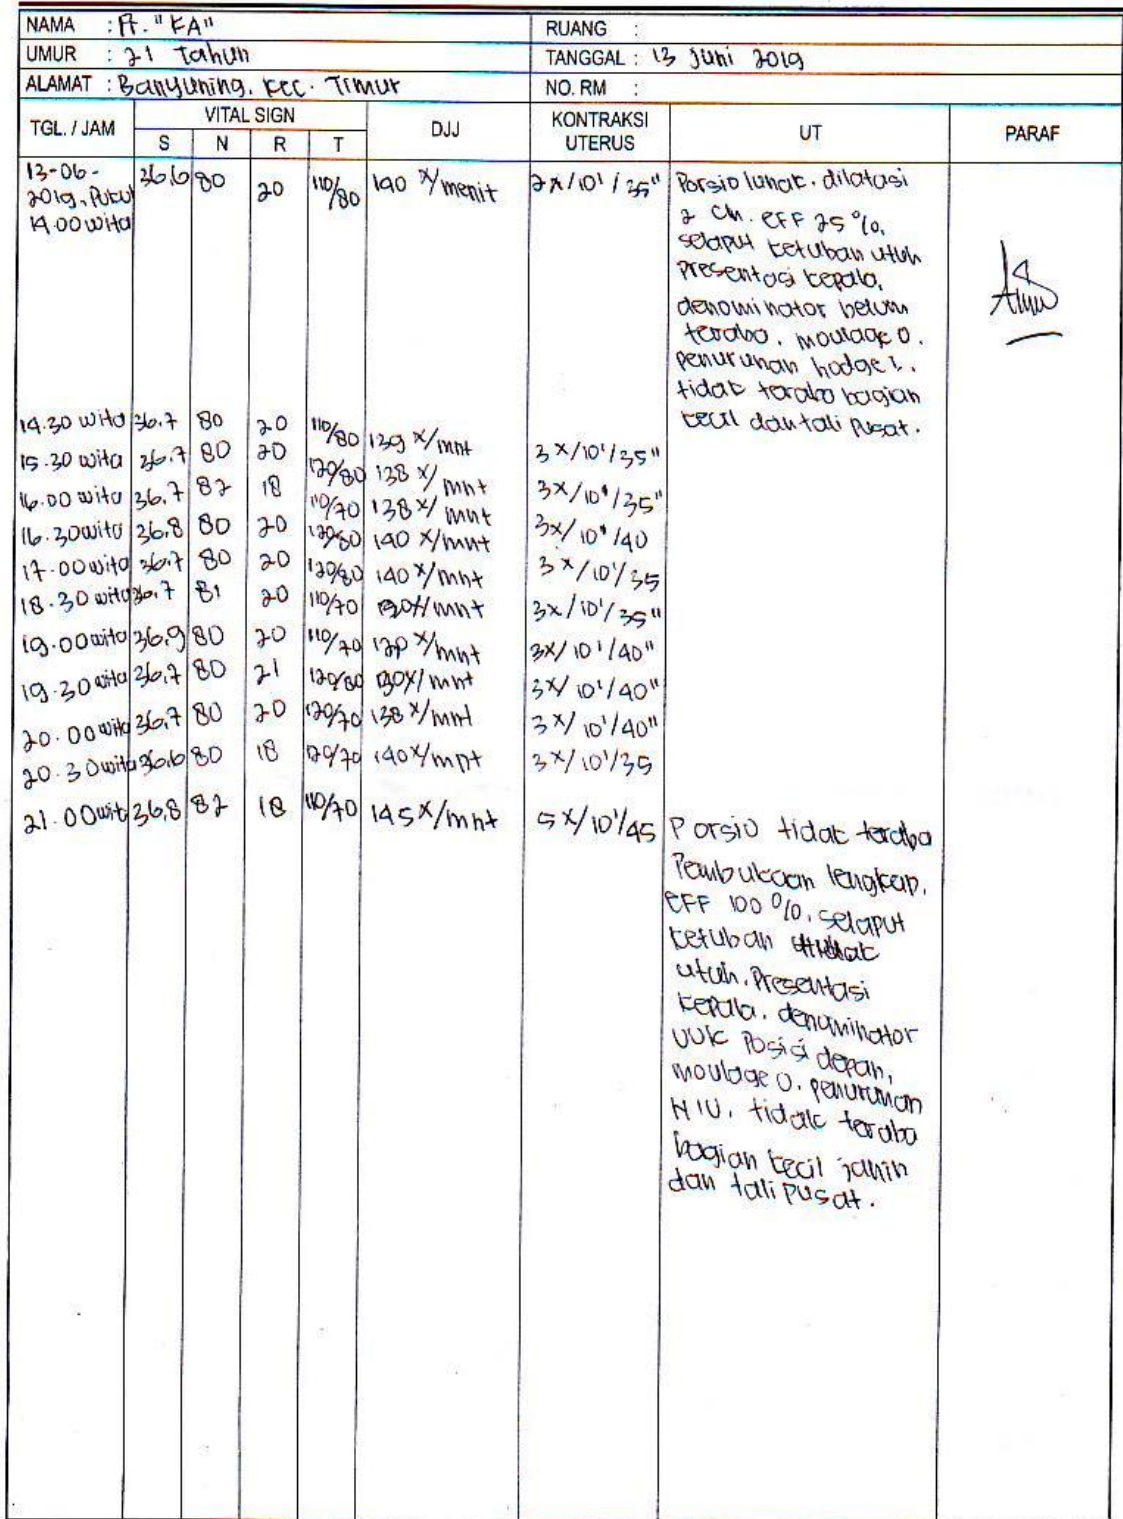 NAMA : Pr. "KA" RUANG :
UMUR : 21 Tahun TANGGAL : 13 Juni 2019
ALAMAT : Banyuning, Kec. Timur NO. RM :
TGL. / JAM VITAL SIGN DJJ KONTRAKSI UTERUS UT PARAF
S N R T
13-06- 36,6 80 20 110/80 140 x/menit 2x/10'/35" Porsio lunak, dilatasi
2019, Pukul 2 cm. eff 25%,
14.00 wita selaput ketuban utuh
presentasi kepala,
denominator belum
teraba, moulage 0,
penurunan hodge I,
tidak teraba bagian
kecil dan tali pusat.
14.30 wita 36,7 80 20 110/80 139 x/mnt
15.30 wita 36,7 80 20 120/80 138 x/mnt 3x/10'/35"
16.00 wita 36,7 82 18 110/70 138 x/mnt 3x/10'/35"
16.30 wita 36,8 80 20 120/80 140 x/mnt 3x/10'/40
17.00 wita 36,7 80 20 120/80 140 x/mnt 3x/10'/35
18.30 wita 36,7 81 20 110/70 3x/10'/35"
19.00 wita 36,9 80 20 110/70 3x/10'/40"
19.30 wita 36,7 80 21 120/80 130x/mnt 3x/10'/40"
20.00 wita 36,7 80 20 120/70 138 x/mnt 3x/10'/40"
20.30 wita 36,6 80 18 120/70 140x/mnt 3x/10'/35
21.00 wit 36,8 82 18 110/70 145x/mnt 5x/10'/45 Porsio tidak teraba
Pembukaan lengkap,
EFF 100%, selaput
ketuban tidak
utuh. Presentasi
kepala, denominator
UUK Posisi depan,
moulage 0, penurunan
HIV, tidak teraba
bagian kecil janin
dan tali pusat.